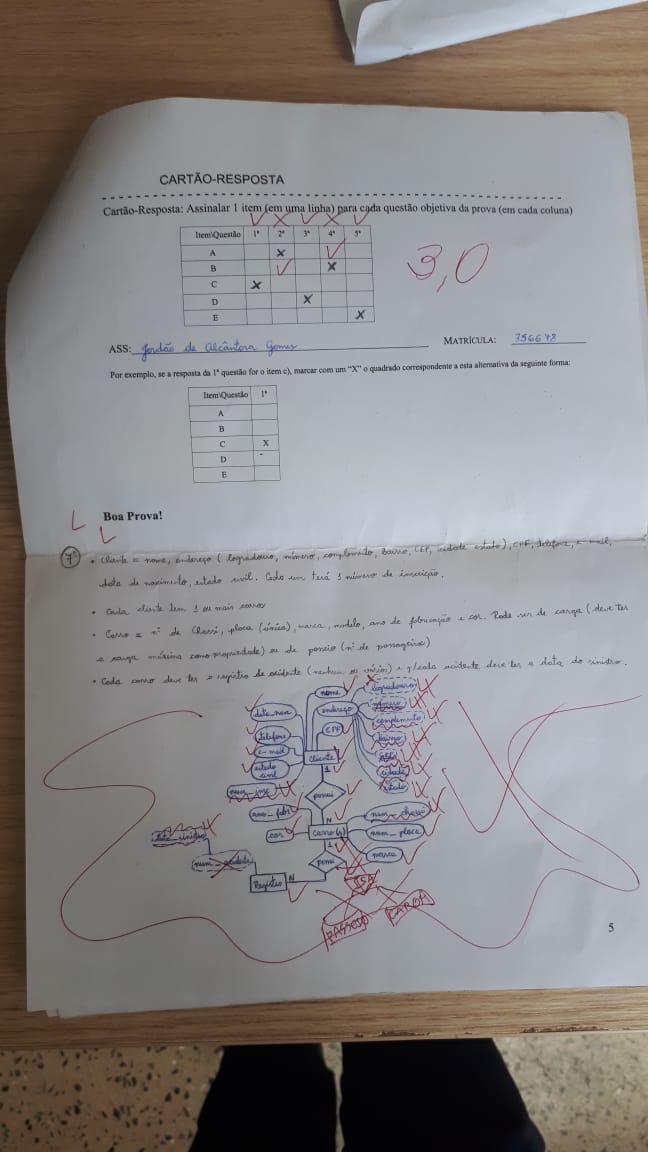 CARTÃO-RESPOSTA
Cartão-Resposta: Assinalar 1 item (em uma linha) para cada questão objetiva da prova (em cada coluna)
Item\Questão 1ª 2ª 3ª 4ª 5ª
A X
B X
C X
D X
E X
3,0
ASS: Jordão de Alcântara Gomes MATRÍCULA: 356648
Por exemplo, se a resposta da 1ª questão for o item c), marcar com um "X" o quadrado correspondente a esta alternativa da seguinte forma:
Item\Questão 1ª
A
B
C X
D
E
Boa Prova!
7ª • Cliente = nome, endereço (logradouro, número, complemento, bairro, CEP, cidade estado), CPF, telefone, e-mail,
data de nascimento, estado civil. Cada um terá 1 número de inscrição.
• Cada cliente tem 1 ou mais carros
• Carro = nº de Chassi, placa (única), marca, modelo, ano de fabricação e cor. Pode ser de carga (deve ter
a carga máxima como propriedade) ou de passeio (nº de passageiros)
• Cada carro deve ter o registro de acidente (nenhum ou vários) e p/cada acidente deve ter a data do sinistro.
nome
logradouro
data_nasc
endereço
número
complemento
telefone
CPF
bairro
e-mail
Cliente
cidade
estado civil
1
estado
num_insc
possui
ano_fabri
N
num_chassi
cor
carro(s)
num_placa
1
marca
possui
Registro
N
ISA
PASSEIO
CARGA
5